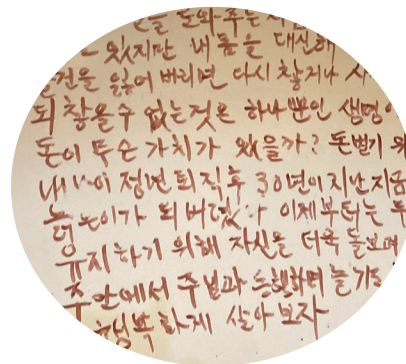 도와주는
있지만 내몸을 대신해
물건을 잃어버리면 다시 찾거나 사
되찾을수 없는것은 하나뿐인 생명
돈이 무슨 가치가 있을까? 돈벌기 위
정년퇴직후 30년이 지난 지금
늙은이가 되버렸 이제부터는
유지하기 위해 자신을 더욱 돌보며
주안에서 주님과 동행하며 즐기
행복하게 살아보자